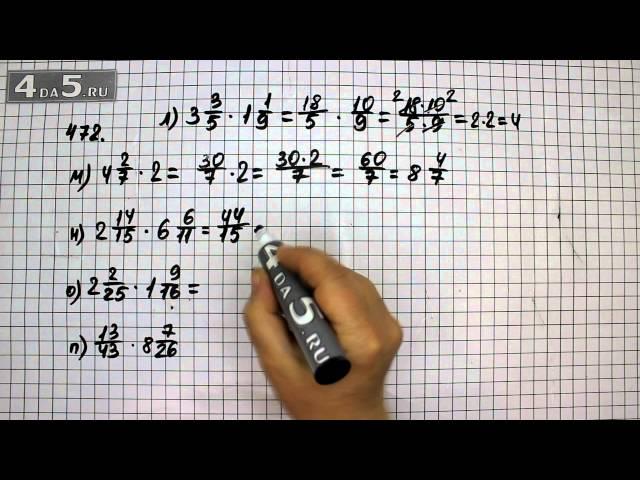 4DA5.RU
472. л) 3 3/5 · 1 1/9 = 18/5 · 10/9 = ²18·10²/5·9 = 2·2=4
м) 4 2/7 · 2 = 30/7 · 2 = 30·2/7 = 60/7 = 8 4/7
н) 2 14/15 · 6 6/11 = 44/15 ·
о) 2 2/25 · 1 9/16 =
п) 13/43 · 8 7/26
4DA5.RU